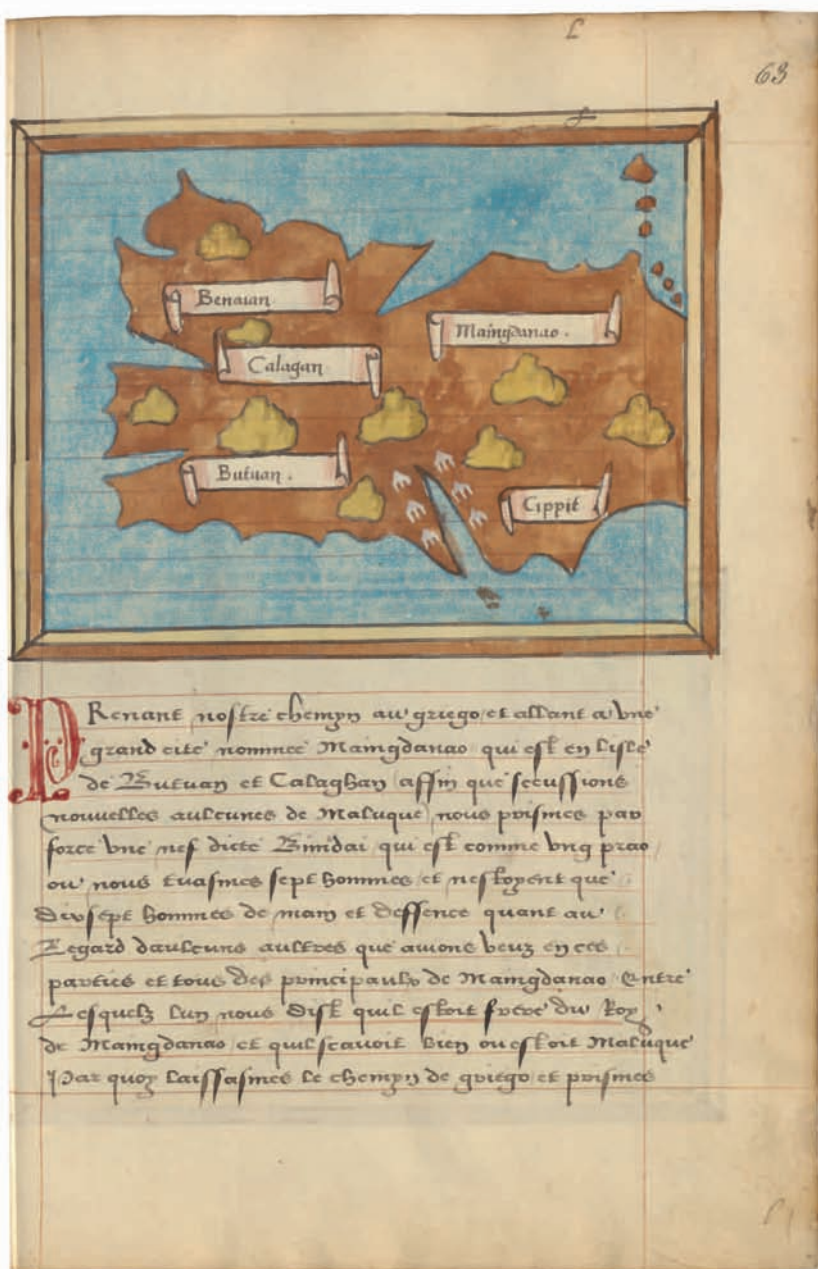 63
Benaian
Calagan
Maingdanao.
Butuan.
Cippit
PRenant nostre chemyn au griego et allant a vne
grand cite nommee Maingdanao qui est en lisle
de Butuan et Calaghan affin que sceussions
nouvelles aulcunes de Maluque nous prismes par
force vne nef dicte Binidai qui est comme vng prao
ou nous tuasmes sept hommes et nestoyent que
dixsept hommes de main et deffence quant au
Regard daulcuns aultres que auions veuz en ces
parties et tous des principaulx de Maingdanao Entre
Lesquelz lun nous dist quil estoit frere du Roy
de Maingdanao et quil scauoit bien ou estoit Maluque
Par quoy laissasmes le chemyn de griego et prismes